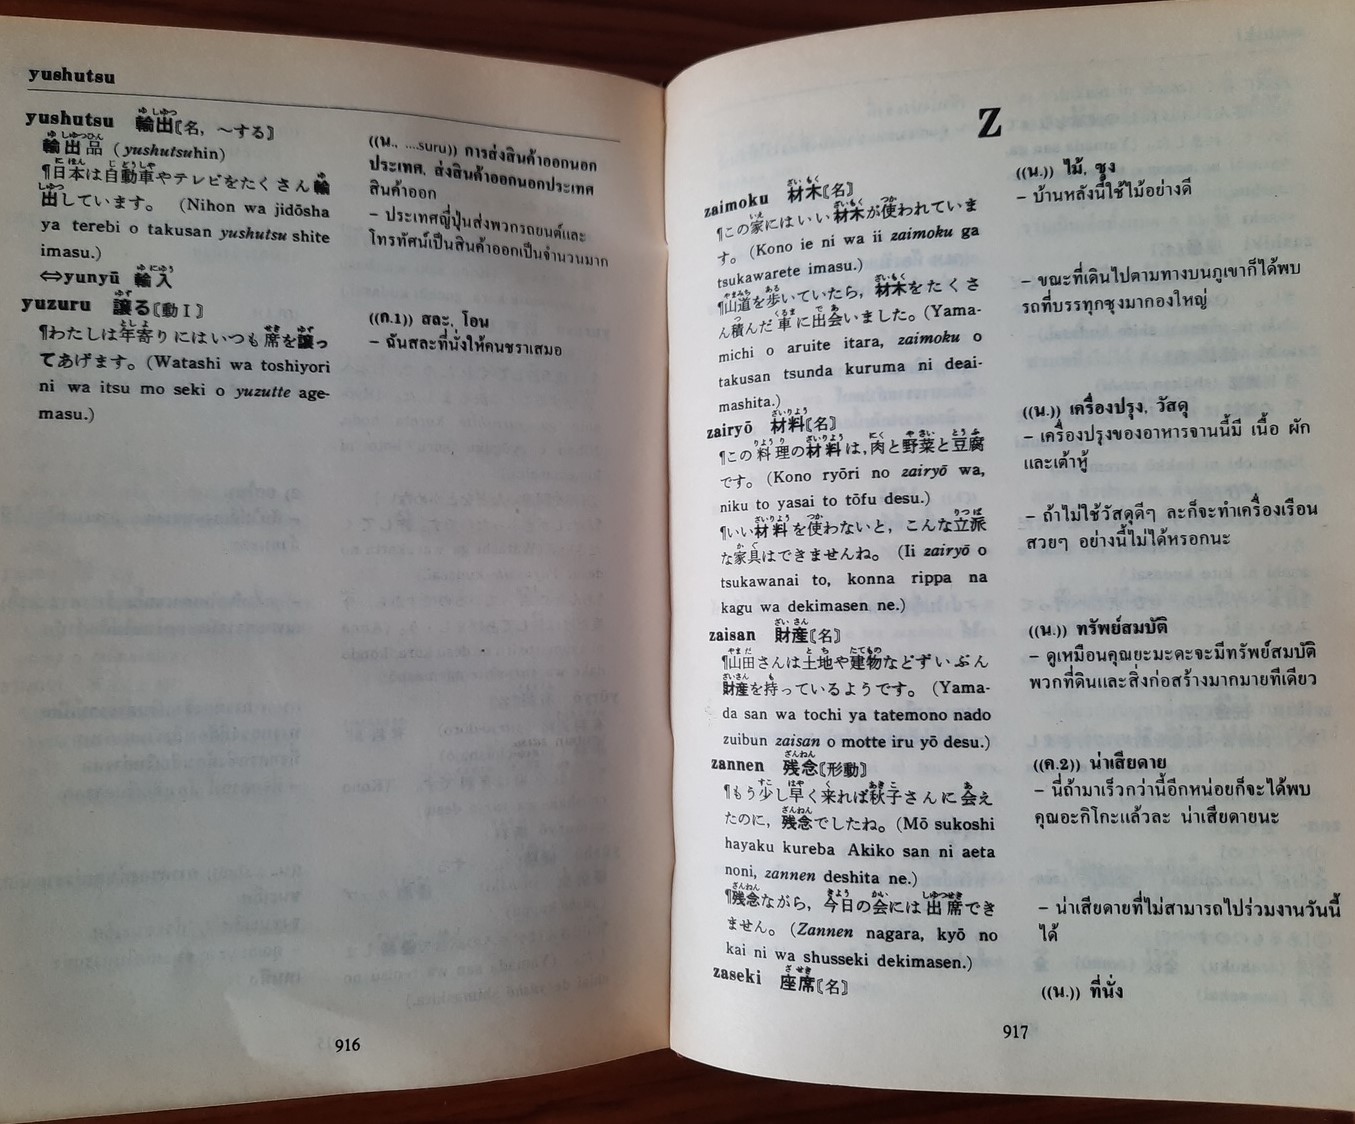 yushutsu
yushutsu 輸出〚名, ～する〛
輸出品 (yushutsuhin)
¶日本は自動車やテレビをたくさん輸
出しています。 (Nihon wa jidōsha
ya terebi o takusan yushutsu shite
imasu.)
⇔yunyū 輸入
yuzuru 譲る〚動Ⅰ〛
¶わたしは年寄りにはいつも席を譲っ
てあげます。(Watashi wa toshiyori
ni wa itsu mo seki o yuzutte age-
masu.)
((น., ....suru)) การส่งสินค้าออกนอก
ประเทศ, ส่งสินค้าออกนอกประเทศ
สินค้าออก
– ประเทศญี่ปุ่นส่งพวกรถยนต์และ
โทรทัศน์เป็นสินค้าออกเป็นจำนวนมาก
((ก.1)) สละ, โอน
– ฉันสละที่นั่งให้คนชราเสมอ
916
Z
zaimoku 材木〚名〛
¶この家にはいい材木が使われていま
す。 (Kono ie ni wa ii zaimoku ga
tsukawarete imasu.)
¶山道を歩いていたら, 材木をたくさ
ん積んだ車に出会いました。(Yama-
michi o aruite itara, zaimoku o
takusan tsunda kuruma ni deai-
mashita.)
zairyō 材料〚名〛
¶この料理の材料は, 肉と野菜と豆腐
です。 (Kono ryōri no zairyō wa,
niku to yasai to tōfu desu.)
¶いい材料を使わないと, こんな立派
な家具はできませんね。 (Ii zairyō o
tsukawanai to, konna rippa na
kagu wa dekimasen ne.)
zaisan 財産〚名〛
¶山田さんは土地や建物などずいぶん
財産を持っているようです。 (Yama-
da san wa tochi ya tatemono nado
zuibun zaisan o motte iru yō desu.)
zannen 残念〚形動〛
¶もう少し早く来れば秋子さんに会え
たのに, 残念でしたね。(Mō sukoshi
hayaku kureba Akiko san ni aeta
noni, zannen deshita ne.)
¶残念ながら, 今日の会には出席でき
ません。 (Zannen nagara, kyō no
kai ni wa shusseki dekimasen.)
zaseki 座席〚名〛
((น.)) ไม้, ซุง
– บ้านหลังนี้ใช้ไม้อย่างดี
– ขณะที่เดินไปตามทางบนภูเขาก็ได้พบ
รถที่บรรทุกซุงมากองใหญ่
((น.)) เครื่องปรุง, วัสดุ
– เครื่องปรุงของอาหารจานนี้มี เนื้อ ผัก
และเต้าหู้
– ถ้าไม่ใช้วัสดุดีๆ ละก็จะทำเครื่องเรือน
สวยๆ อย่างนี้ไม่ได้หรอกนะ
((น.)) ทรัพย์สมบัติ
– ดูเหมือนคุณยะมะดะจะมีทรัพย์สมบัติ
พวกที่ดินและสิ่งก่อสร้างมากมายทีเดียว
((ค.2)) น่าเสียดาย
– นี่ถ้ามาเร็วกว่านี้อีกหน่อยก็จะได้พบ
คุณอะกิโกะแล้วละ น่าเสียดายนะ
– น่าเสียดายที่ไม่สามารถไปร่วมงานวันนี้
ได้
((น.)) ที่นั่ง
917